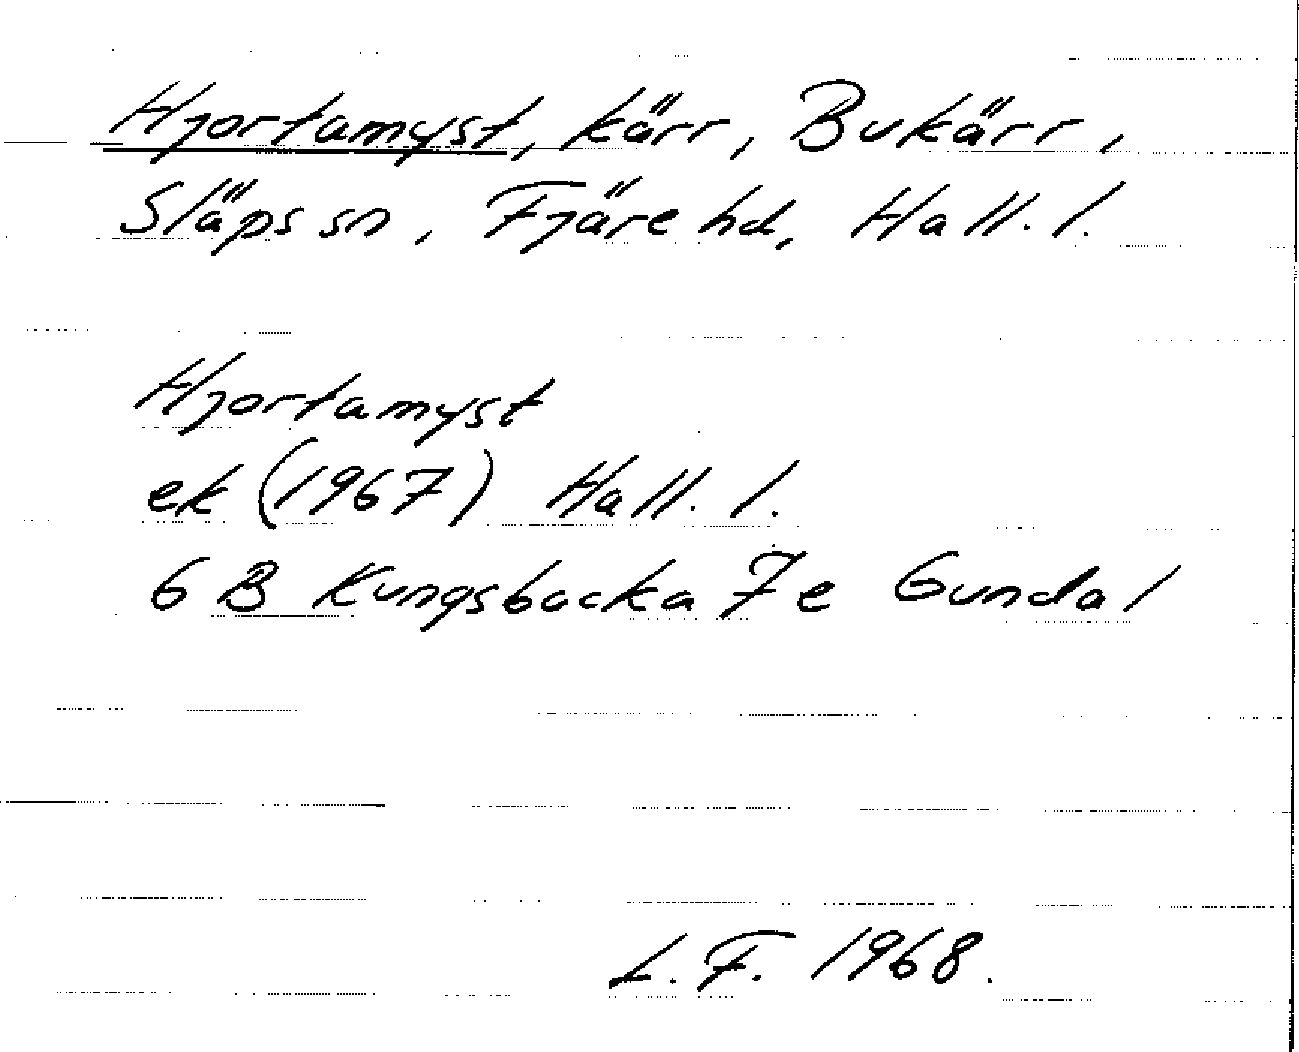 Hjortamyst, kärr, Bukärr,
Släps sn, Fjäre hd, Hall. l.
Hjortamyst
ek (1967) Hall. l.
6 B Kungsbacka 7 e Gundal
L. F. 1968.